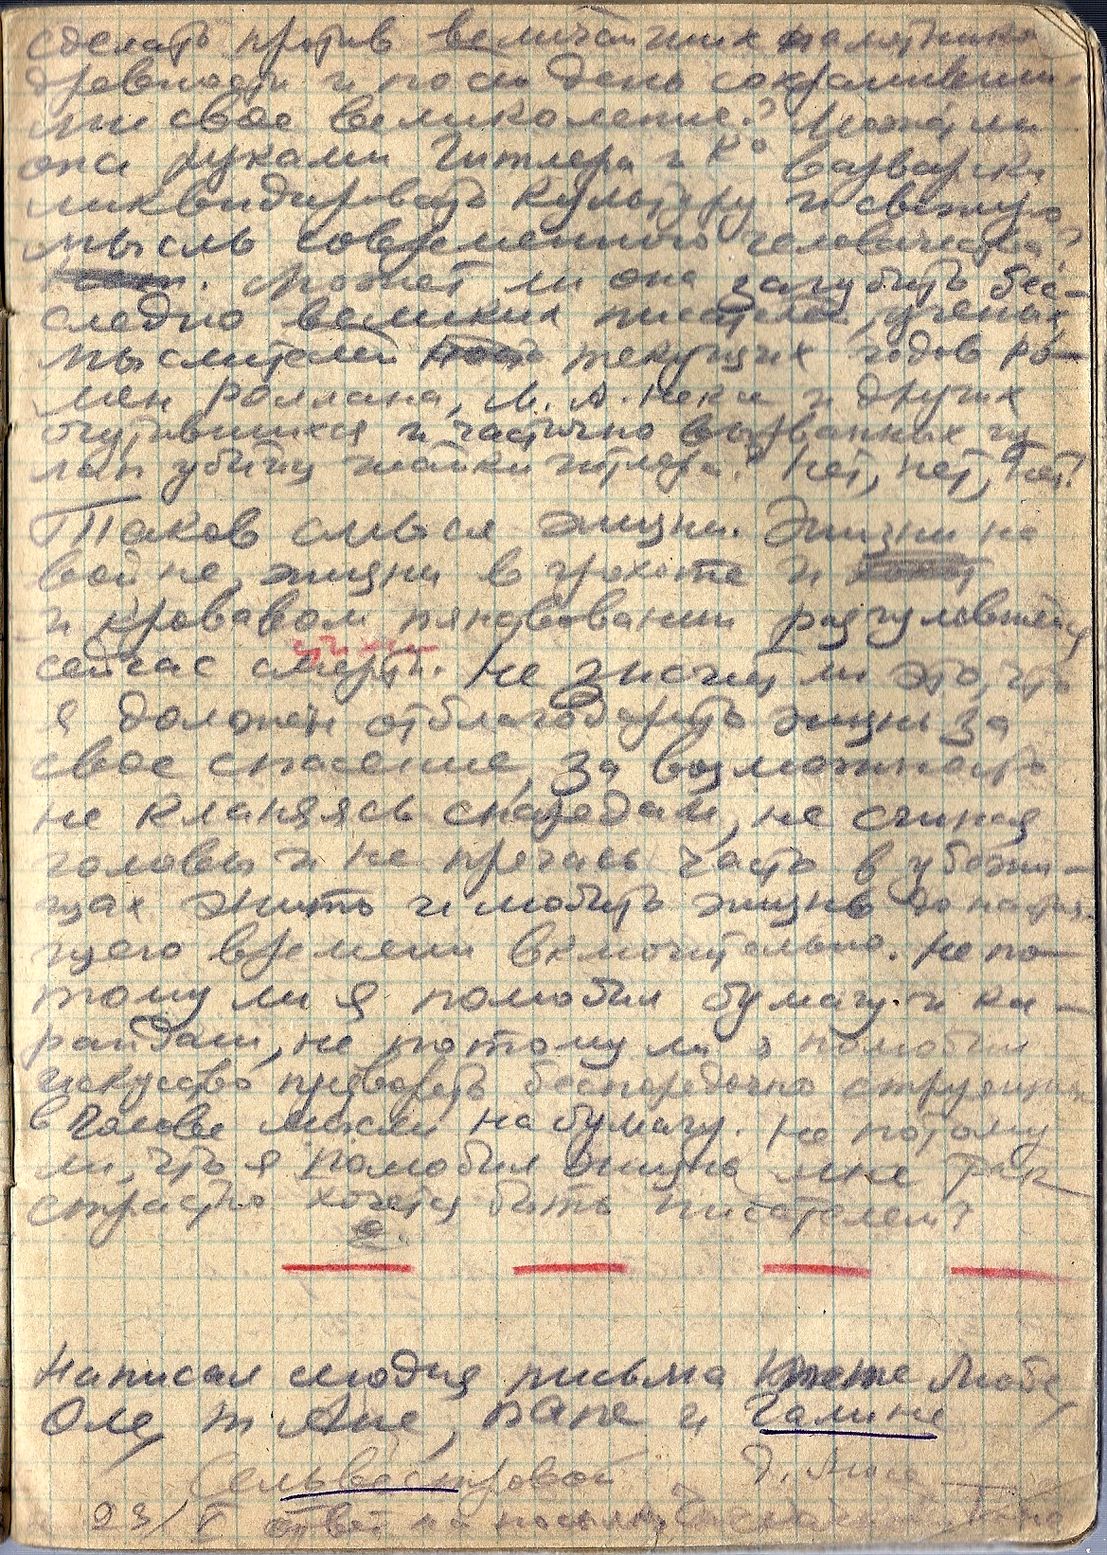 сделать против величайших памятников
древности и по сей день сохранивши-
ми свое великолепие? Может ли
она руками Гитлера и К° варварски
ликвидировать культуру и светлую
мысль современного человечества?
Может ли она загубить бес-
следно великих писателей, ученых,
мыслителей текущих годов Ро-
мен Роллана, М. А. Нексе и других
очутившихся и частично вырванных из
лап убийц шайки Гитлера? Нет, нет, нет!
Таков смысл жизни. Жизни на
войне, жизни в грохоте и
и кровавом пиновании разгулявшейся
сейчас смерти. Не значит ли это, что
я должен отблагодарить жизнь за
свое спасение, за возможность
не кланяясь снарядам, не сгиная
головы и не прячась часто в убежи-
щах жить и любить жизнь до настоя-
щего времени включительно. Не по-
тому ли я полюбил бумагу и ка-
рандаш, не потому ли я полюбил
искуство претворять беспорядочно струящиеся
в голове мысли на бумагу. Не потому
ли, что я полюбил жизнь мне так
страстно хочется быть писателем?
Написал сегодня письма Любе,
Оле, т. Ане, папе и Галине
Сельвестровой
23/V ответ на посылку